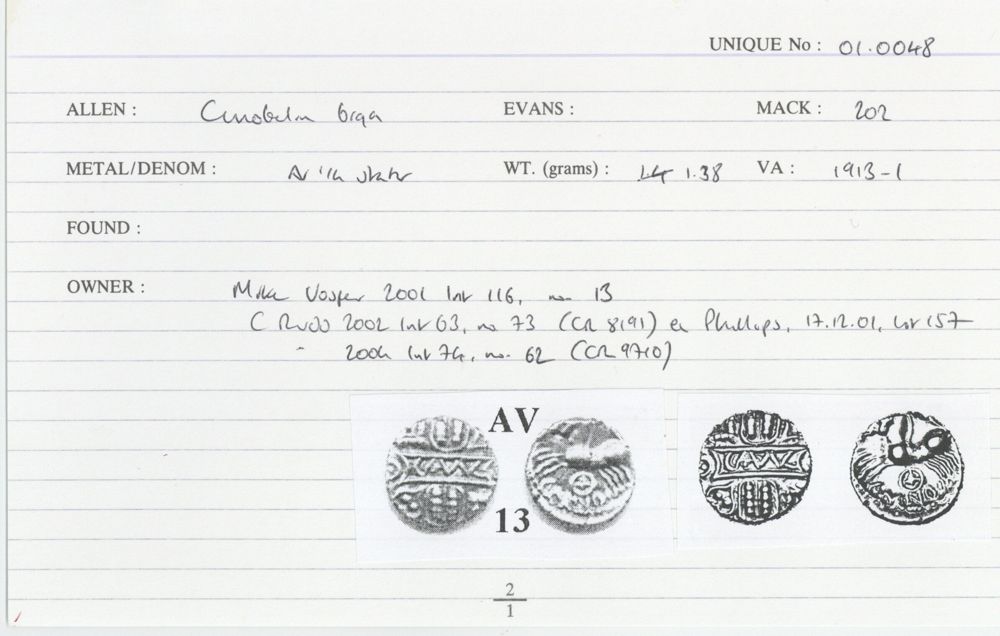 UNIQUE No : 01.0048
ALLEN : Cunobelin biga EVANS : MACK : 202
METAL/DENOM : AV 1/4 stater WT. (grams) : 1.38 VA : 1913-1
FOUND :
OWNER : Mike Vosper 2001 list 116, no. 13
C Rudd 2002 list 63, no 73 (CR 8191) ex Phillips, 17.12.01, lot 157
" 2004 list 74, no. 62 (CR 9710)
AV
13
2
1